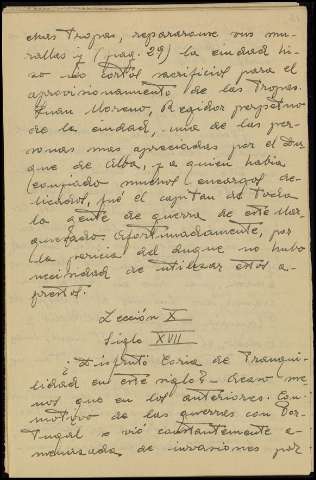 chas tropas, repararanse sus mu-
rallas y (pag. 29) la ciudad hi-
zo no cortos sacrificios para el
aprovisionamiento de las tropas.
Juan Moreno, Regidor perpetuo
de la ciudad, una de las per-
sonas mas apreciadas por el Du
que de Alba, y a quien habia
confiado muchos encargos de-
licados, fué el capitan de toda
la gente de guerra de este Mar
quesado. Afortunadamente, por
la pericia del duque no hubo
necesidad de utilizar estos a-
prestos.
Lección X
Siglo XVII
¿Disfrutó Coria de tranqui-
lidad en este siglo? - Acaso me
nos que en los anteriores. Con
motivo de las guerras con Por-
tugal se vió constantemente a-
menazada de invasiones por